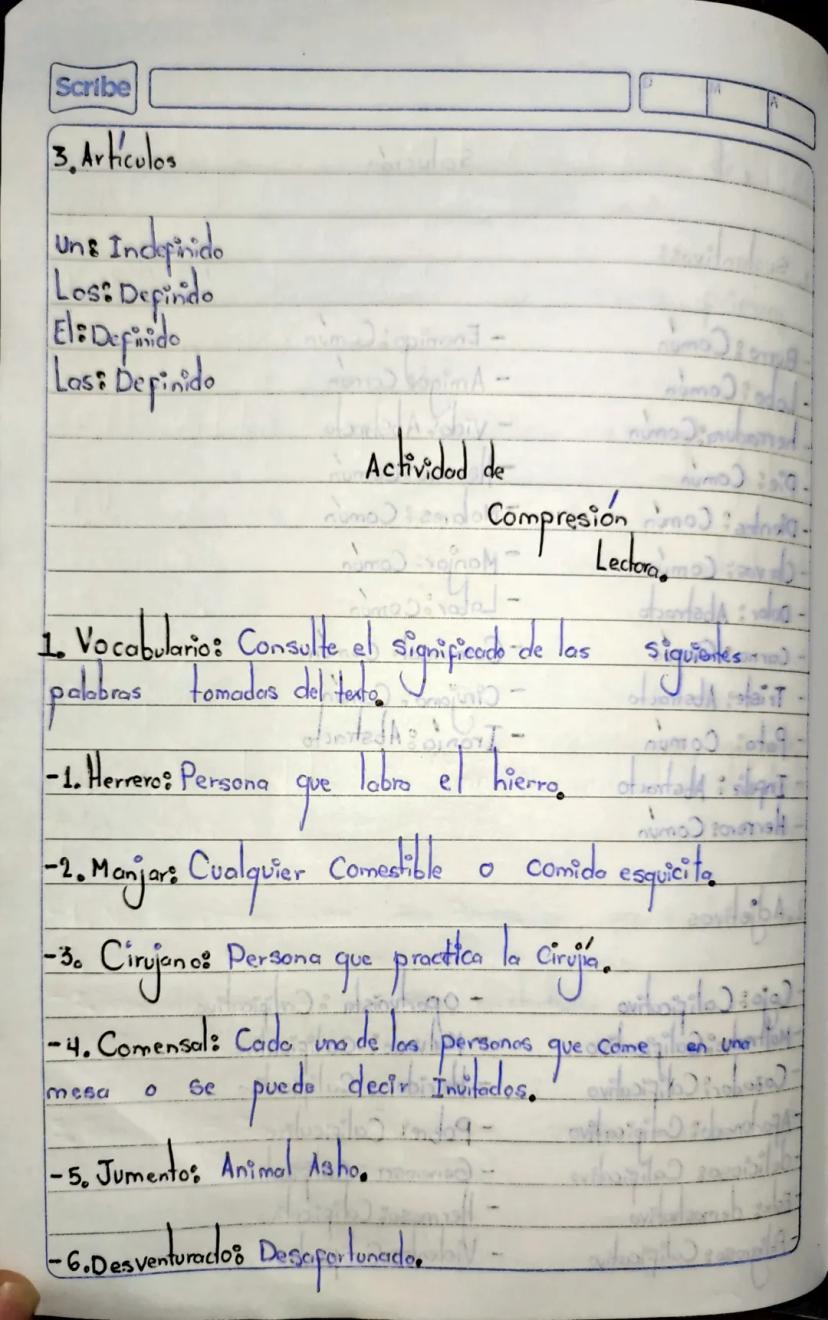 Scribe
D M A
3. Artículos
Un: Indefinido
Los: Definido
El: Definido
Las: Definido
Actividad de
Compresión
Lectora.
1. Vocabulario: Consulte el significado de las siguientes
palabras tomadas del texto.
-1. Herrero: Persona que labra el hierro.
-2. Manjar: Cualquier Comestible o comida esquicita.
-3. Cirujano: Persona que practica la Cirujía.
-4. Comensal: Cada una de las personas que come en una
mesa o se puede decir Invitados.
-5. Jumento: Animal Asno.
-6. Desventurado: Desafortunado.